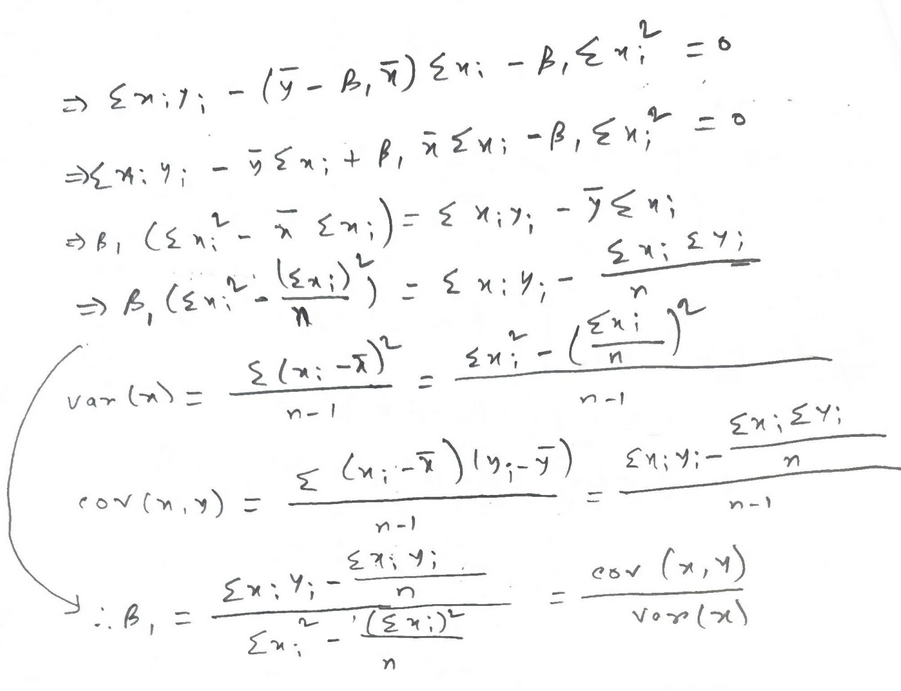 ⇒ Σxᵢyᵢ - (ȳ - β₁x̄) Σxᵢ - β₁Σxᵢ² = 0
⇒ Σxᵢyᵢ - ȳΣxᵢ + β₁x̄Σxᵢ - β₁Σxᵢ² = 0
⇒ β₁ (Σxᵢ² - x̄ Σxᵢ) = Σxᵢyᵢ - ȳΣxᵢ
⇒ β₁ (Σxᵢ² - (Σxᵢ)²/n) = Σxᵢyᵢ - ΣxᵢΣyᵢ/n
var(x) = Σ(xᵢ - x̄)²/(n-1) = (Σxᵢ² - (Σxᵢ/n)²)/(n-1)
cov(x,y) = Σ(xᵢ - x̄)(yᵢ - ȳ)/(n-1) = (Σxᵢyᵢ - ΣxᵢΣyᵢ/n)/(n-1)
∴ β₁ = (Σxᵢyᵢ - Σxᵢyᵢ/n)/(Σxᵢ² - (Σxᵢ)²/n) = cov(x,y)/var(x)